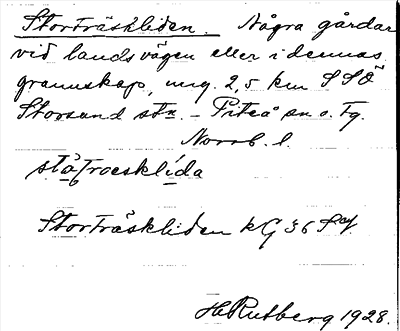 Storträskliden. Några gårdar
vid landsvägen eller i dennas
grannskap, ung. 2,5 km SSÖ
Storsund stn. – Piteå sn o. tg.
Norrb. l.
Storträskliden kG 36
H. Rutberg 1928.